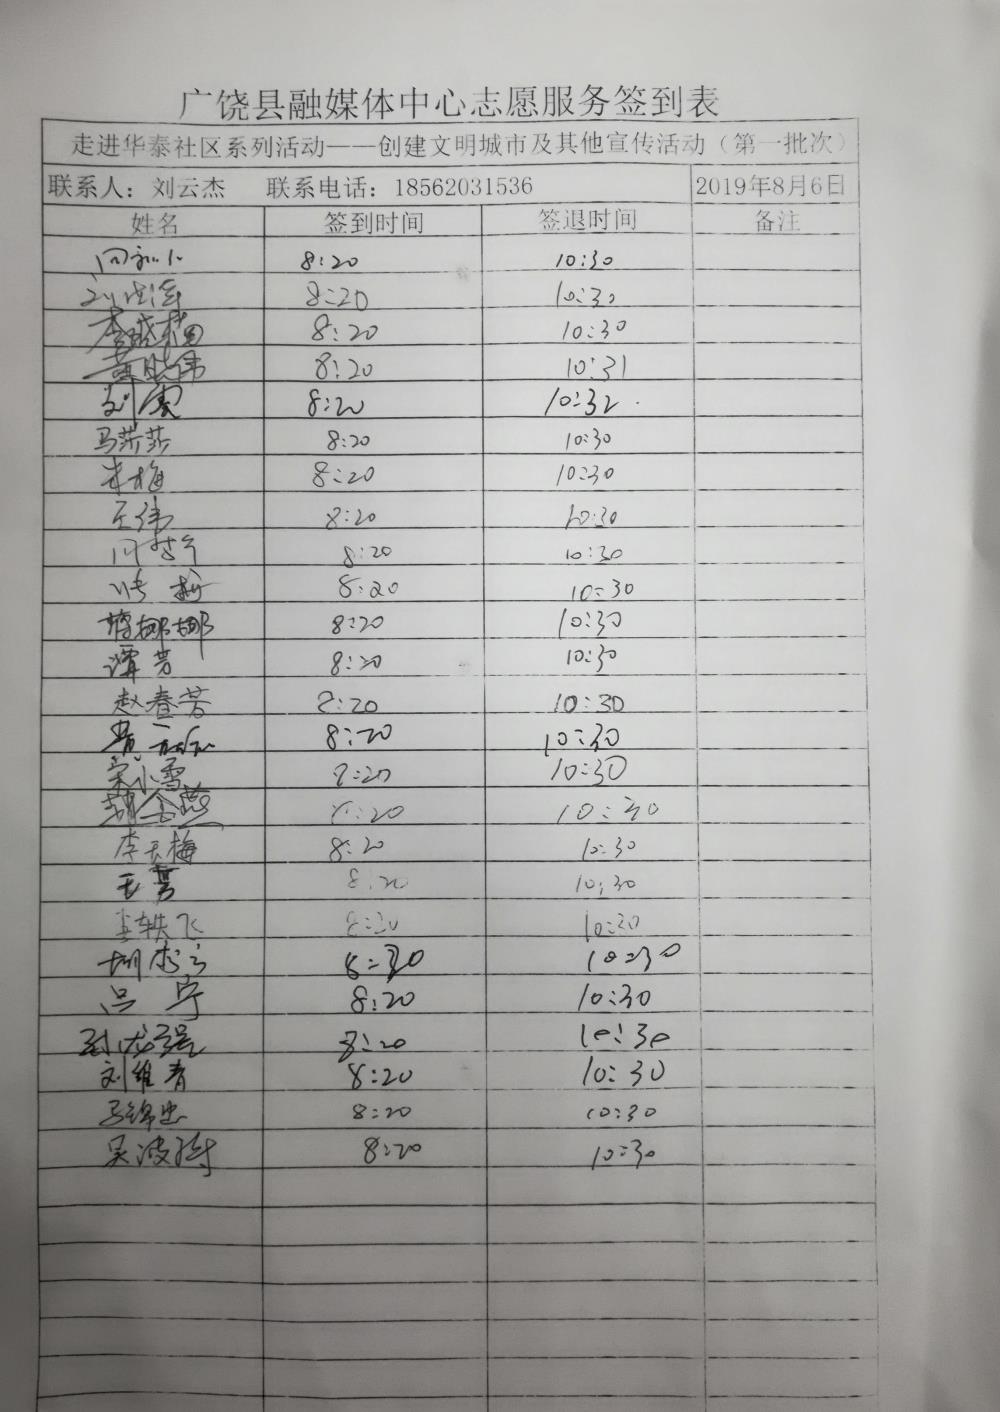 广饶县融媒体中心志愿服务签到表
走进华泰社区系列活动——创建文明城市及其他宣传活动（第一批次）
联系人：刘云杰 联系电话：18562031536 2019年8月6日
姓名 签到时间 签退时间 备注
8:20 10:30
8:20 10:30
8:20 10:30
黄晓伟 8:20 10:31
8:20 10:32
马莎莎 8:20 10:30
朱梅 8:20 10:30
王伟 8:20 10:30
8:20 10:30
8:20 10:30
娜娜 8:20 10:30
谭芳 8:20 10:30
赵春芳 8:20 10:30
8:20 10:30
宋小雪 8:20 10:30
胡金燕 8:20 10:30
李天梅 8:20 10:30
8:20 10:30
李轶飞 8:20 10:30
8:20 10:30
吕宁 8:20 10:30
8:20 10:30
刘维青 8:20 10:30
马锦忠 8:20 10:30
吴波 8:20 10:30